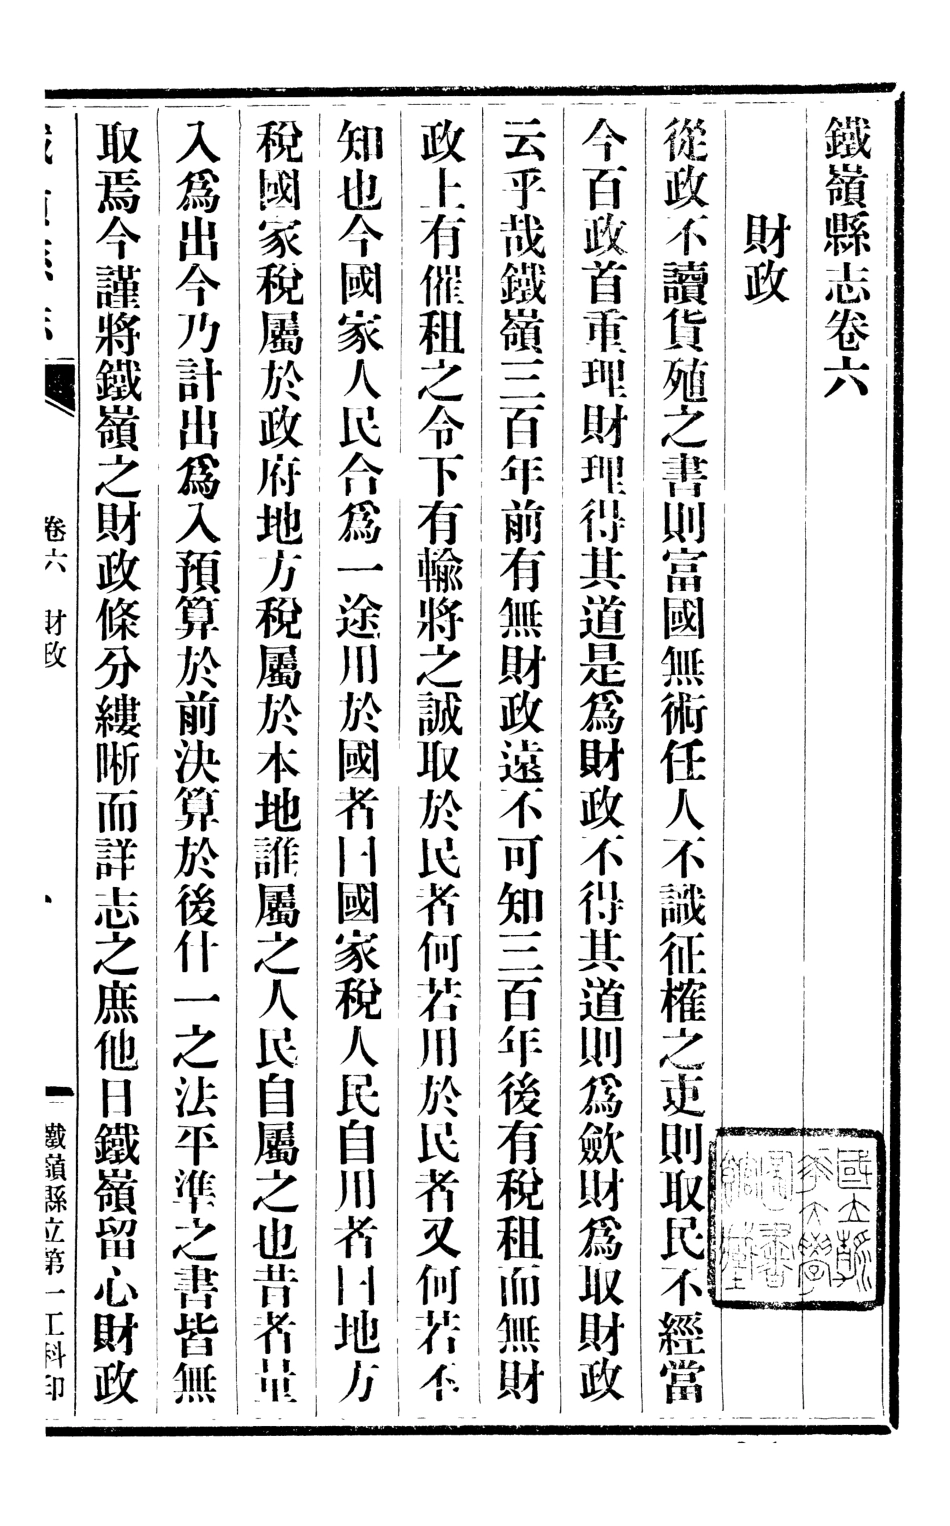 鐵嶺縣志卷六
財政
從政不讀貨殖之書則富國無術任人不識征榷之吏則取民不經當
今百政首重理財理得其道是爲財政不得其道則爲歛財爲取財政
云乎哉鐵嶺三百年前有無財政遠不可知三百年後有稅租而無財
政上有催租之令下有輸將之誠取於民者何若用於民者又何若不
知也今國家人民合爲一途用於國者曰國家稅人民自用者曰地方
稅國家稅屬於政府地方稅屬於本地誰屬之人民自屬之也昔者量
入爲出今乃計出爲入預算於前決算於後什一之法平準之書皆無
取焉今謹將鐵嶺之財政條分縷晰而詳志之庶他日鐵嶺留心財政
卷六 財政
鐵嶺縣立第一工科印